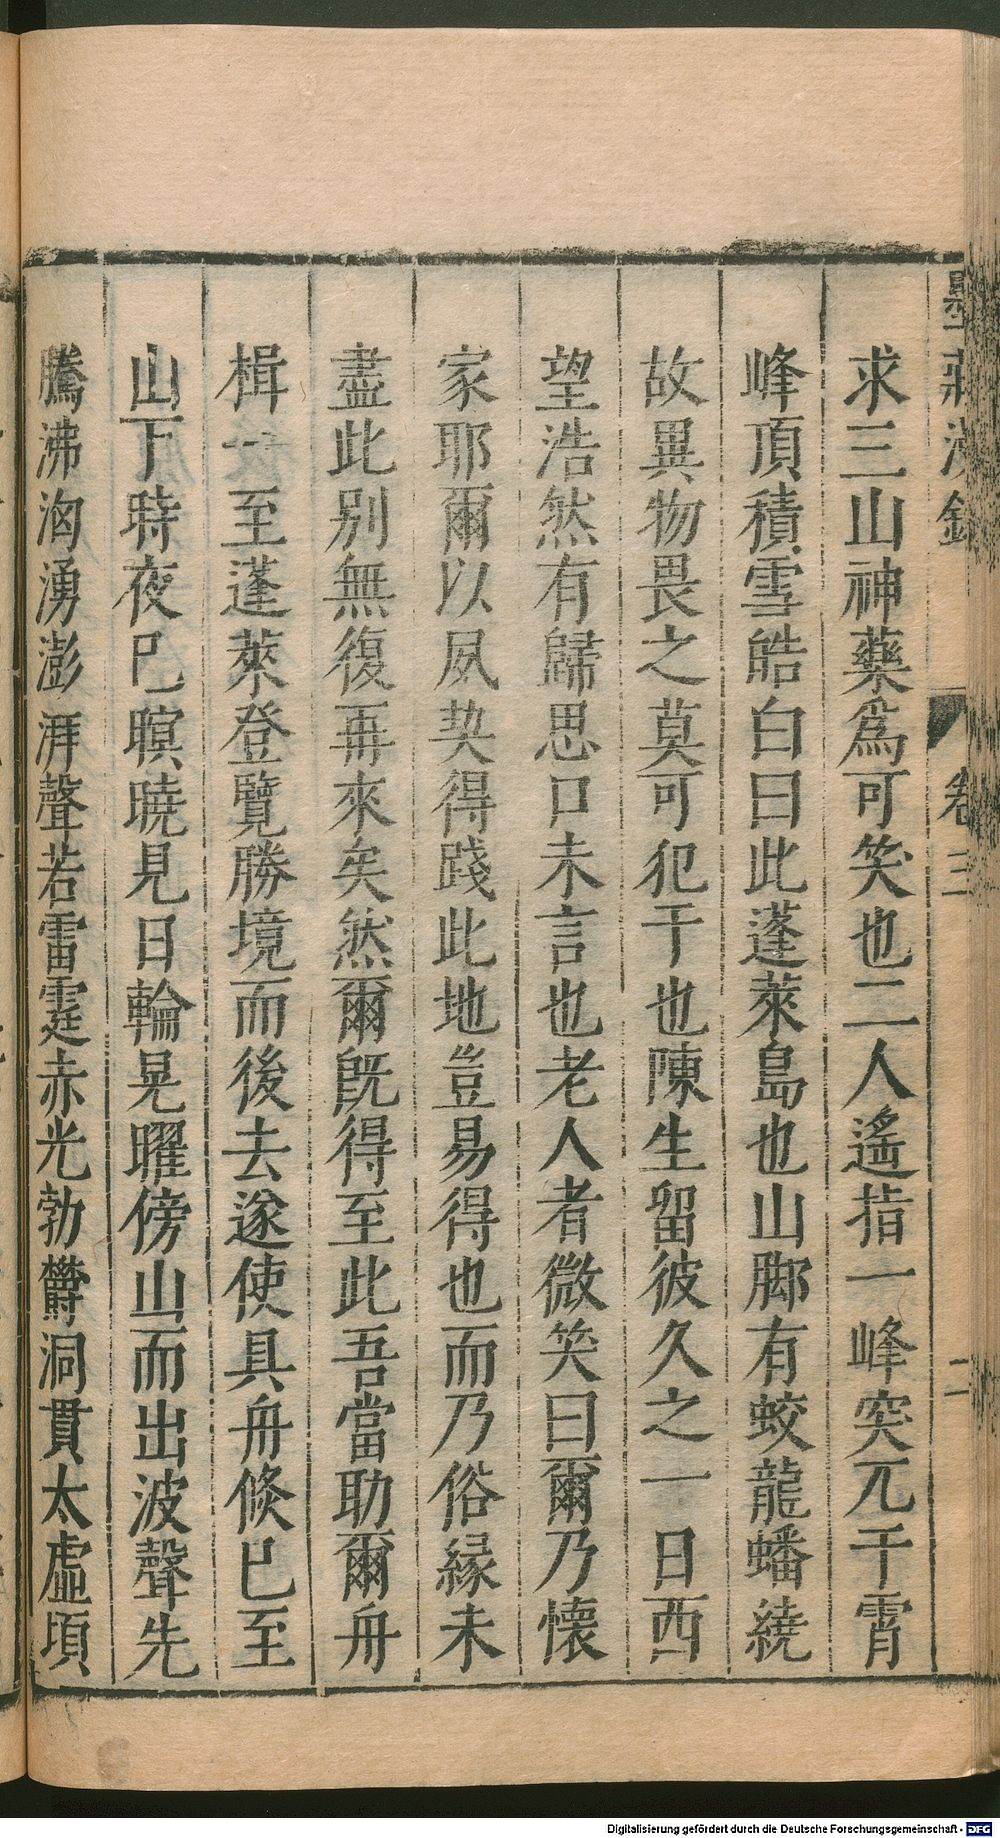 求三山神藥爲可笑也二人遙指一峰突兀干霄
峰頂積雪皓白曰此蓬萊島也山脚有蛟龍蟠繞
故異物畏之莫可犯干也陳生留彼久之一日西
望浩然有歸思口未言也老人者微笑曰爾乃懷
家耶爾以夙契得踐此地豈易得也而乃俗緣未
盡此別無復再來矣然爾旣得至此吾當助爾舟
楫一至蓬萊登覽勝境而後去遂使具舟倐已至
山下時夜已暝曉見日輪晃曜傍山而出波聲先
騰沸洶湧澎湃聲若雷霆赤光勃欝洞貫太虛頃
卷三
二
Digitalisierung gefördert durch die Deutsche Forschungsgemeinschaft - DFG